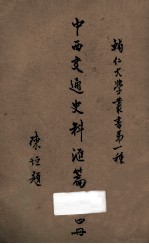 輔仁大學叢書第一種
中西交通史料滙篇
四冊
陳垣題